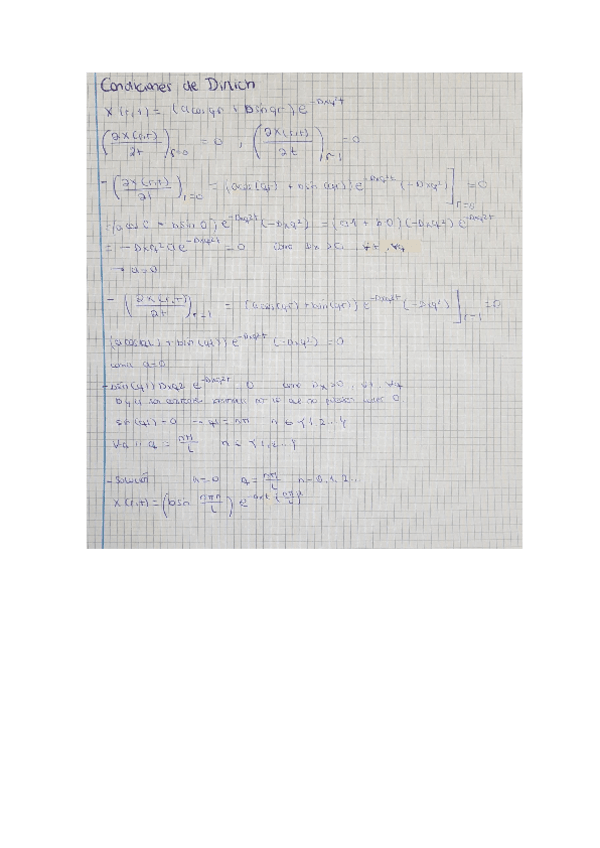 Condiciones de Dirich
X(r,t) = (a cos qr + b sin qr) e^{-Dxq²t}
(∂X(r,t)/∂t)_{r=0} = 0 , (∂X(r,t)/∂t)_{r=l} = 0
- (∂X(r,t)/∂t)_{r=0} = (a cos(qr) + b sin(qr)) e^{-Dxq²t} (-Dxq²)]_{r=0} = 0
(a cos 0 + b sin 0) e^{-Dxq²t} (-Dxq²) = (a·1 + b·0)(-Dxq²) e^{-Dxq²t}
= -Dxq² a e^{-Dxq²t} = 0 como Dx > 0 ∀t, ∀q
→ a=0
- (∂X(r,t)/∂t)_{r=l} = (a cos(qr) + b sin(qr)) e^{-Dxq²t} (-Dxq²)]_{r=l} = 0
(a cos(ql) + b sin(ql)) e^{-Dxq²t} (-Dxq²) = 0
como a=0
-b sin(ql) Dxq² e^{-Dxq²t} = 0 como Dx>0, ∀t, ∀q
no pueden 0
sin(ql) = 0 → ql = nπ n ∈ {1,2...}
q = nπ/L n ∈ {1,2...}
- Solución a=0 q = nπ/L n=0,1,2...
X(r,t) = (b sin nπr/L) e^{-Dxt(nπ/L)²}